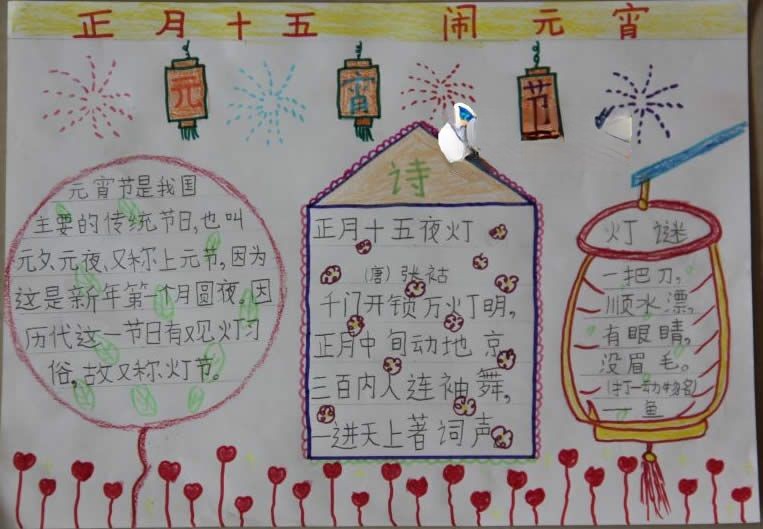 正月十五 闹元宵
元 宵 节
元宵节是我国
主要的传统节日,也叫
元夕、元夜、又称上元节,因为
这是新年第一个月圆夜。因
历代这一节日有观灯习
俗,故又称灯节。
诗
正月十五夜灯
(唐)张祜
千门开锁万火丁明,
正月中旬动地京
三百内人连袖舞,
一进天上著词声
灯谜
一把刀,
顺水漂,
有眼睛,
没眉毛。
(打一动物名)
一鱼